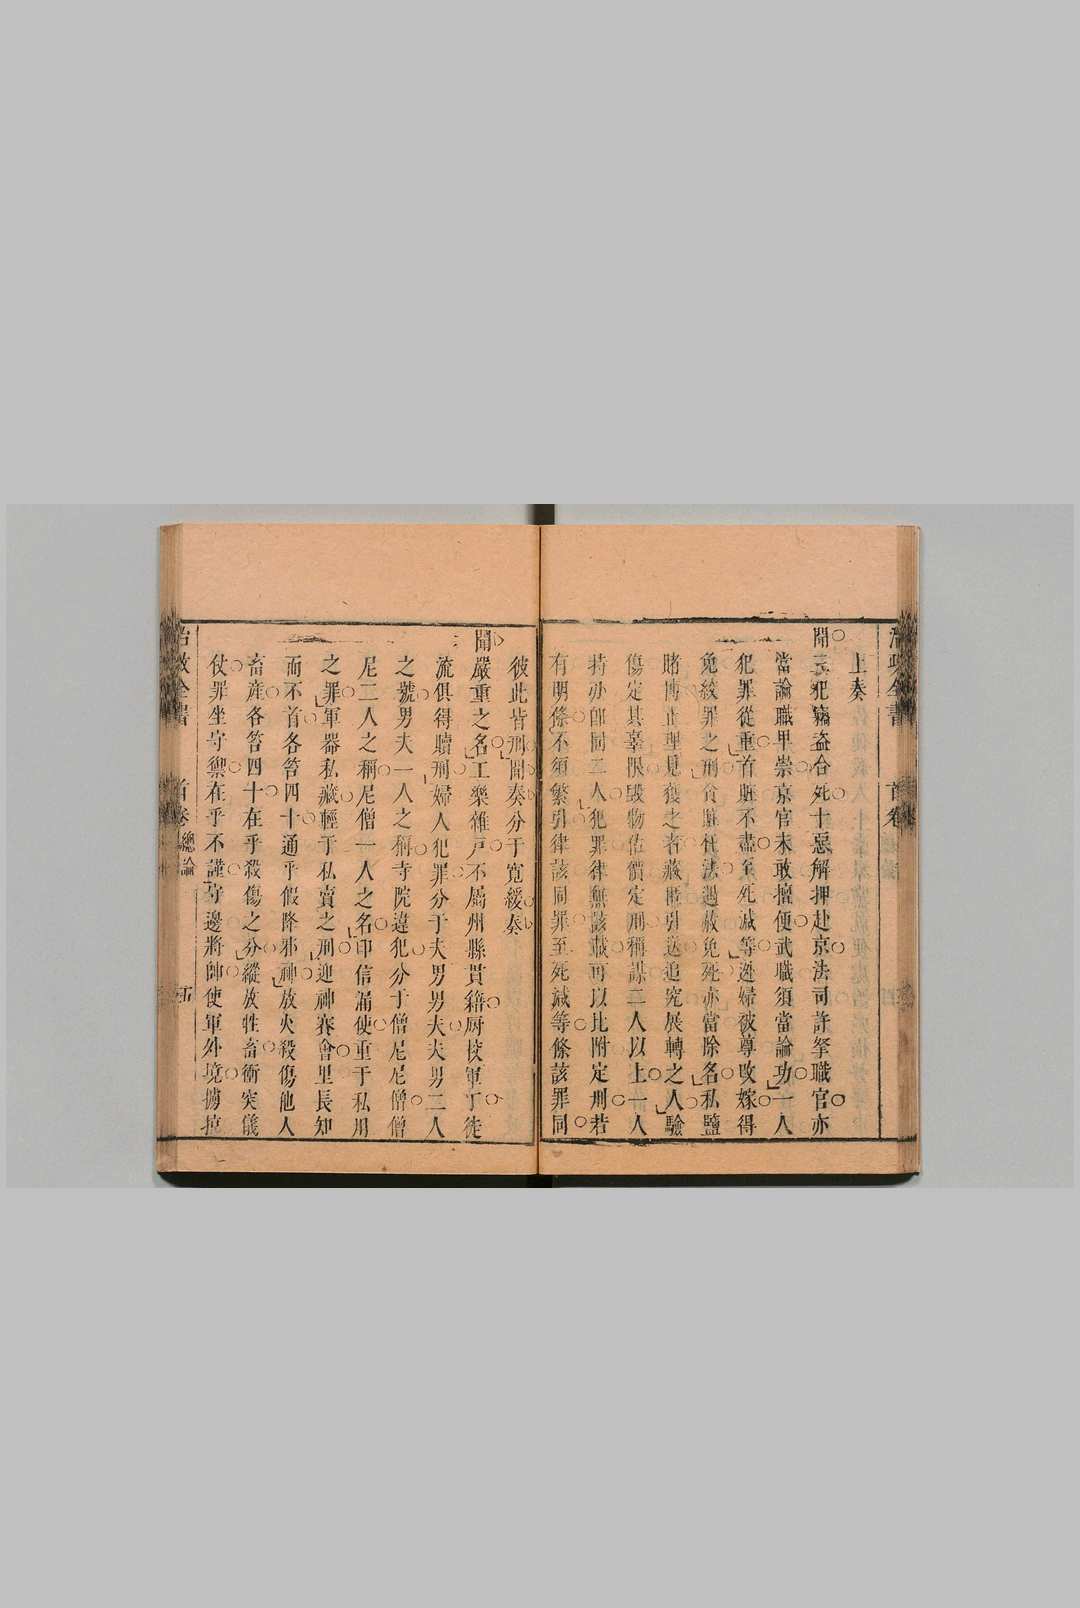 治政全書 首卷
上奏
聞三犯竊盜合死十惡解押赴京法司許拏職官亦
當論職甲崇京官未敢擅便武職須當論功一人
犯罪從重首賍不盡至死減等逃婦被尊改嫁得
免絞罪之刑貪賍枉法過赦免死亦當除名私鹽
賭博止理見獲之者藏匿引送追究展轉之人驗
傷定其辜限毀物估價定刑稱謀二人以上一人
特办即同二人犯罪律無該載可以比附定刑若
有明條不須繁引律該同罪至死減等條該罪同
彼此皆刑聞奏分于寬緩奏
聞嚴重之名工樂雜戶不屬州縣貫籍厨校軍丁徒
流俱得贖刑婦人犯罪分于夫男男夫夫男二人
之號男夫一人之稱寺院違犯分于僧尼尼僧
尼二人之稱尼僧一人之名印信漏使重于私用
之罪軍器私藏輕于私賣之刑迎神賽會里長知
而不首各笞四十通乎假降邪神放火殺傷他人
畜產各笞四十在乎殺傷之分縱放牲畜衝突儀
仗罪坐守禦在乎不謹守邊將帥使軍外境擄掠
治政全書 首卷 總論 五